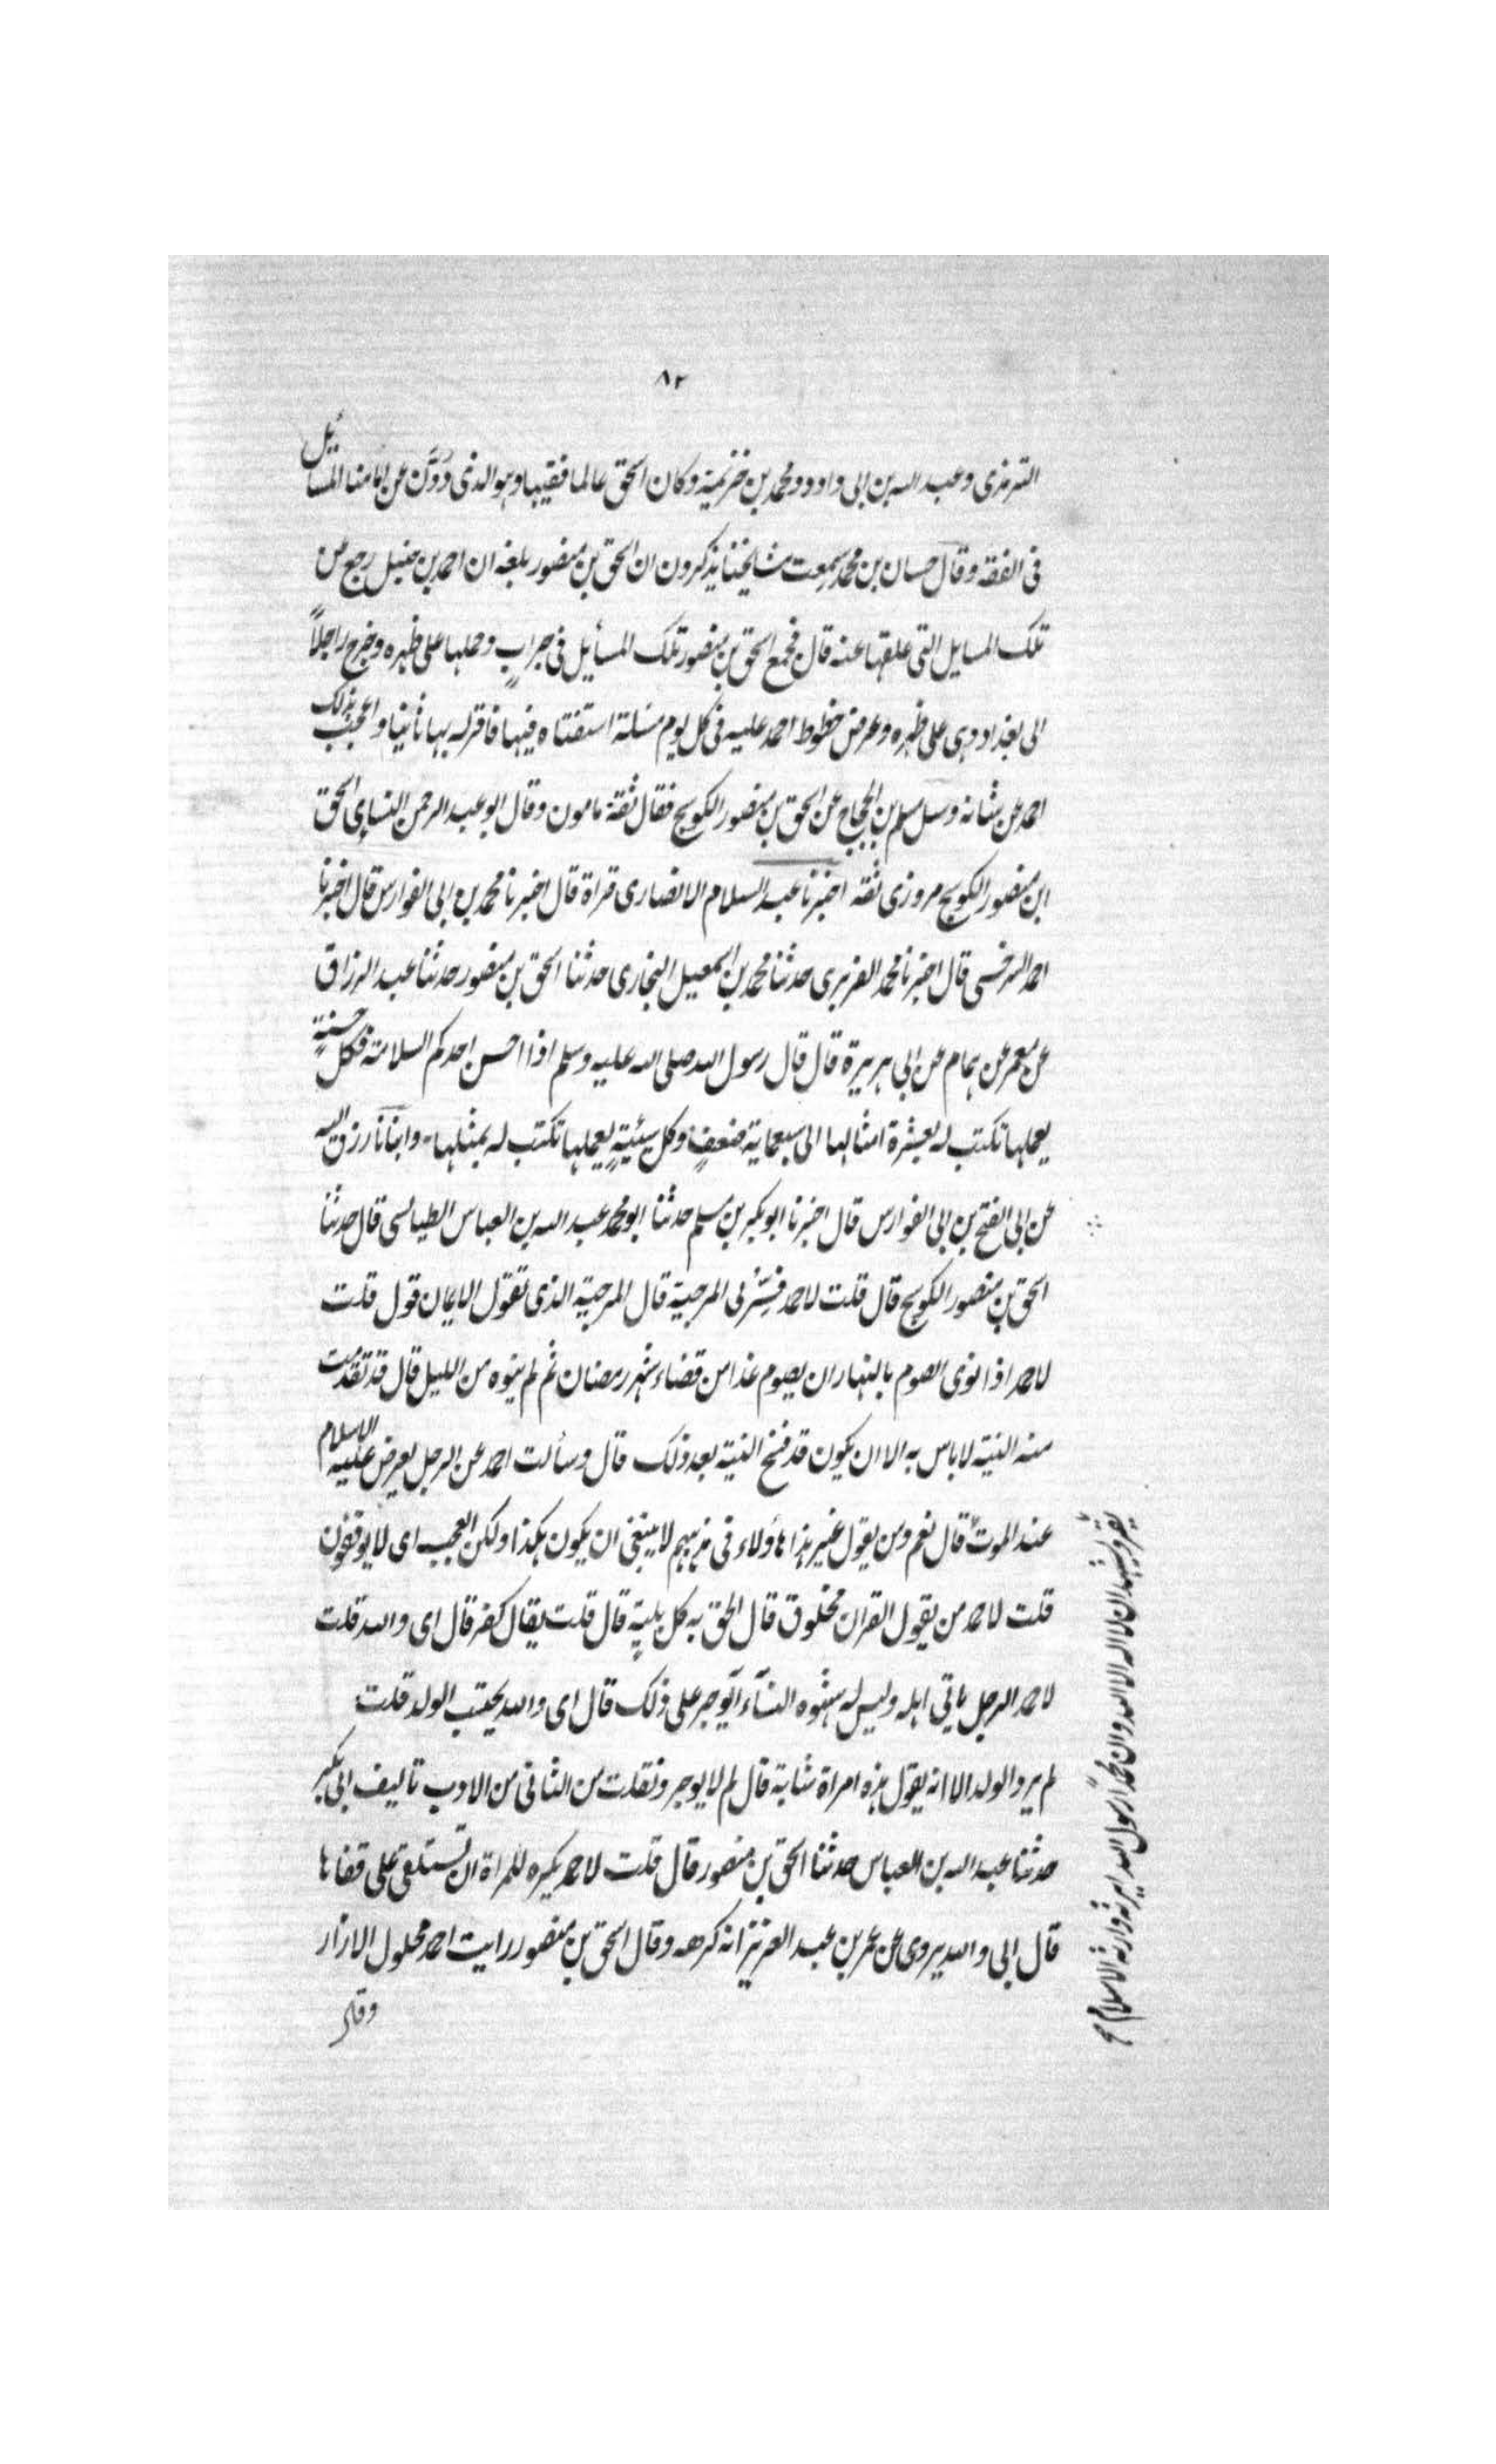 ٨٢
الترمذى وعبد الله بن ابى داود ومحمد بن خزيمة وكان اسحق عالما فقيها وهو الذى دوّن عن امامنا المسائل
فى الفقه وقال حسان بن محمد سمعت مشايخنا يذكرون ان اسحق بن منصور بلغه ان احمد بن حنبل رجع عن
تلك المسايل التى علقها عنه قال فجمع اسحق بن منصور تلك المسأيل فى جرابٍ وحملها على ظهره وخرج راجلاً
الى بغداد وهى على ظهره وعرض خطوط احمد عليه فى كل يوم مسئلة استفتاه فيها فاقر له بها ثانيا واعجب بذلك
احمد من شانه وسئل مسلم بن الحجاج عن اسحق بن منصور الكوسج فقال ثقة مامون وقال ابو عبد الرحمن النسايى اسحق
ابن منصور الكوسج مروزى ثقه اخبرنا عبد السلام الانصارى قراة قال اخبرنا محمد بن ابى الفوارس قال اخبرنا
احمد السرخسى قال اخبرنا محمد الفربرى حدثنا محمد بن اسمعيل البخارى حدثنا اسحق بن منصور حدثنا عبد الرزاق
عن معمر عن همام عن ابى هريرة قال قال رسول الله صلى الله عليه وسلم اذا احسن احدكم اسلامه فكل حسنةٍ
يعملها تكتب له بعشرة امثالها الى سبعماية ضعفٍ وكل سيئةٍ يعملها تكتب له بمثلها وانبانا رزق الله
عن ابى الفتح بن ابى الفوارس قال اخبرنا ابو بكر بن مسلم حدثنا ابو محمد عبد الله بن العباس الطيالسى قال حدثنا
اسحق بن منصور الكوسج قال قلت لاحمد فسّر لى المرجية قال المرجية الذى تقول الايمان قول قلت
لاحمد اذا نوى الصوم بالنهار ان يصوم غدا من قضاء شهر رمضان ثم لم ينوه من الليل قال قد تقدمت
منه النية لا باس به الا ان يكون قد فسخ النية بعد ذلك قال وسألت احمد عن الرجل يعرض عليه الاسلام
عند الموت قال نعم ومن يقول غير هذا هأولاء فى مذهبهم لا ينبغى ان يكون هكذا ولكن العجب اى لا يوفقون
قلت لاحمد من يقول القران مخلوق قال الحق به كل بلية قال قلت يقال كفر قال اى والله قلت
لاحمد الرجل ياتى اهله وليس له شهوه النساء أيوجر على ذلك قال اى والله يحتسب الولد قلت
لم يرد الولد الا انه يقول هذه امراة شابة قال لم لا يوجر ونقلت من الثانى من الادب تاليف ابى بكر
حدثنا عبد الله بن العباس حدثنا اسحق بن منصور قال قلت لاحمد يكره للمراة ان تستلقى على قفاها
قال اى والله يروى عن عمر بن عبد العزيز انه كرهه وقال اسحق بن منصور رايت احمد محلول الازار
وقال
يقر ويشهد ان لا اله الا الله وان محمدا رسول الله يرثه وارثه الاسلام